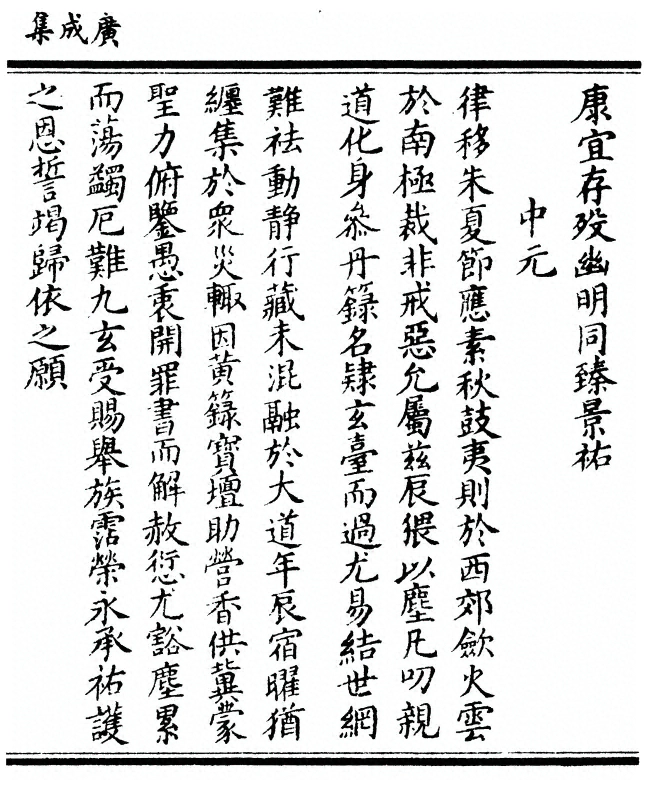 廣成集
康宜存殁幽明同臻景祐
中元
律移朱夏節應素秋鼓夷則於西郊歛火雲
於南極裁非戒惡允屬兹辰猥以塵凡叨親
道化身參丹籙名隷玄臺而過尤易結世網
難祛動静行藏未混融於大道年辰宿曜猶
纏集於衆災輙因黄籙寳壇助營香供冀蒙
聖力俯鑒愚衷開罪書而解赦愆尤豁塵累
而蕩蠲厄難九玄受賜舉族霑榮永承祐護
之恩誓竭歸依之願